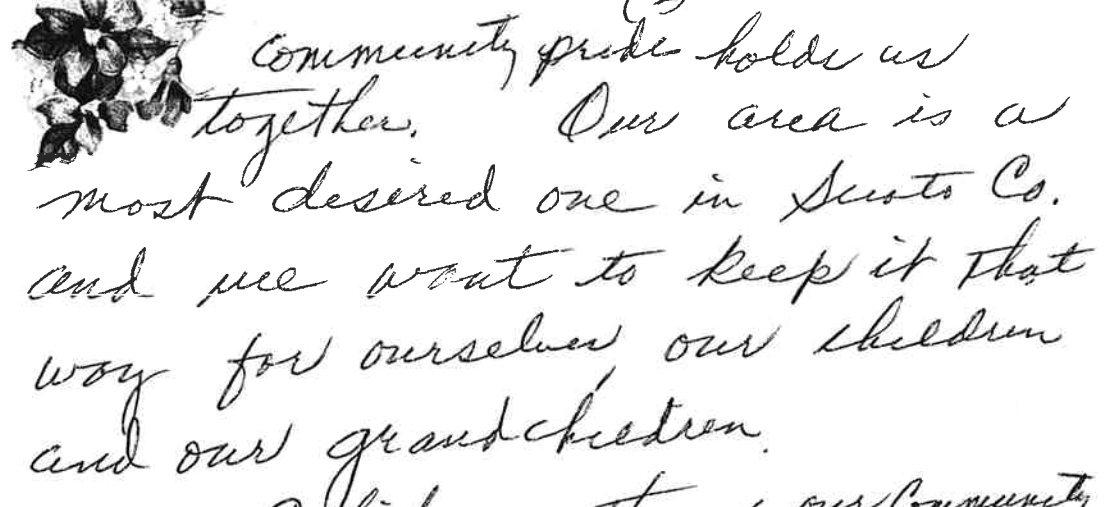 community pride holds us
together. Our area is a
most desired one in Scioto Co.
and we want to keep it that
way for ourselves, our children
and our grandchildren.
our Community